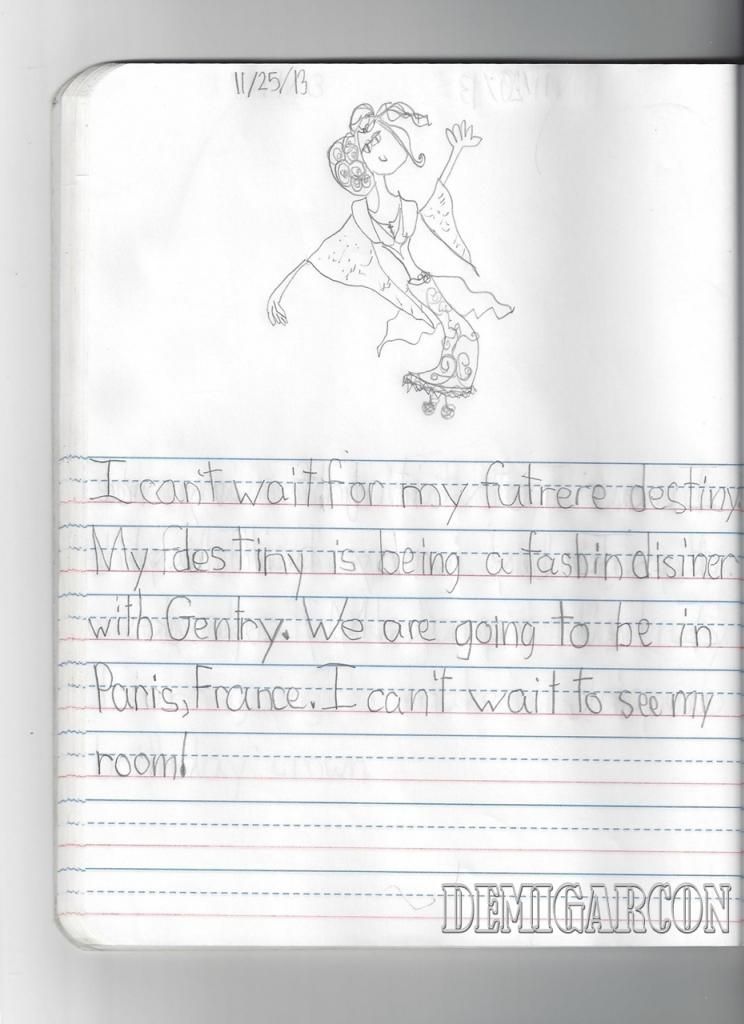 11/25/13
I can't wait for my futrere destiny.
My destiny is being a fashin disiner
with Gentry. We are going to be in
Paris, France. I can't wait to see my
room!
DEMIGARCON